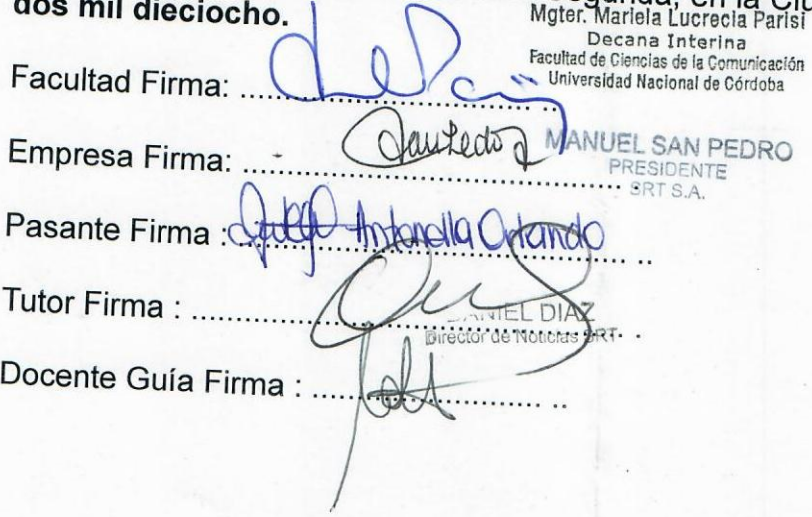 dos mil dieciocho.
segunda, en la Ciu
Mgter. Mariela Lucrecia Parisi
Decana Interina
Facultad de Ciencias de la Comunicación
Universidad Nacional de Córdoba
Facultad Firma: ....................................
Empresa Firma: ....................................
MANUEL SAN PEDRO
PRESIDENTE
SRT S.A.
Pasante Firma : Antonella Orlando
Tutor Firma : ....................................
DANIEL DIAZ
Director de Noticias SRT
Docente Guía Firma : ....................................